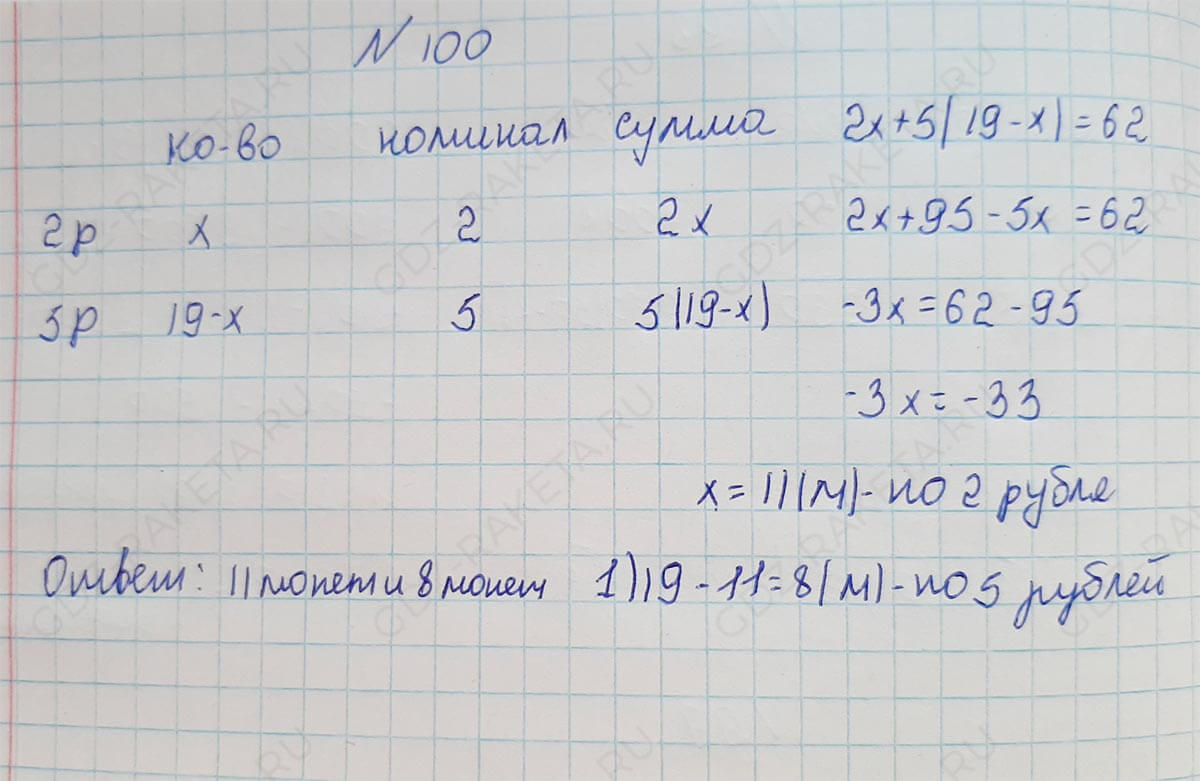 N 100
ко-во номинал сумма 2x+5(19-x)=62
2р x 2 2x 2x+95-5x=62
5р 19-x 5 5(19-x) -3x=62-95
-3x=-33
x=11(м)-по 2 рубля
Ответ: 11 монет и 8 монет 1)19-11=8(м)-по 5 рублей
GDZ-RAKETA.RU